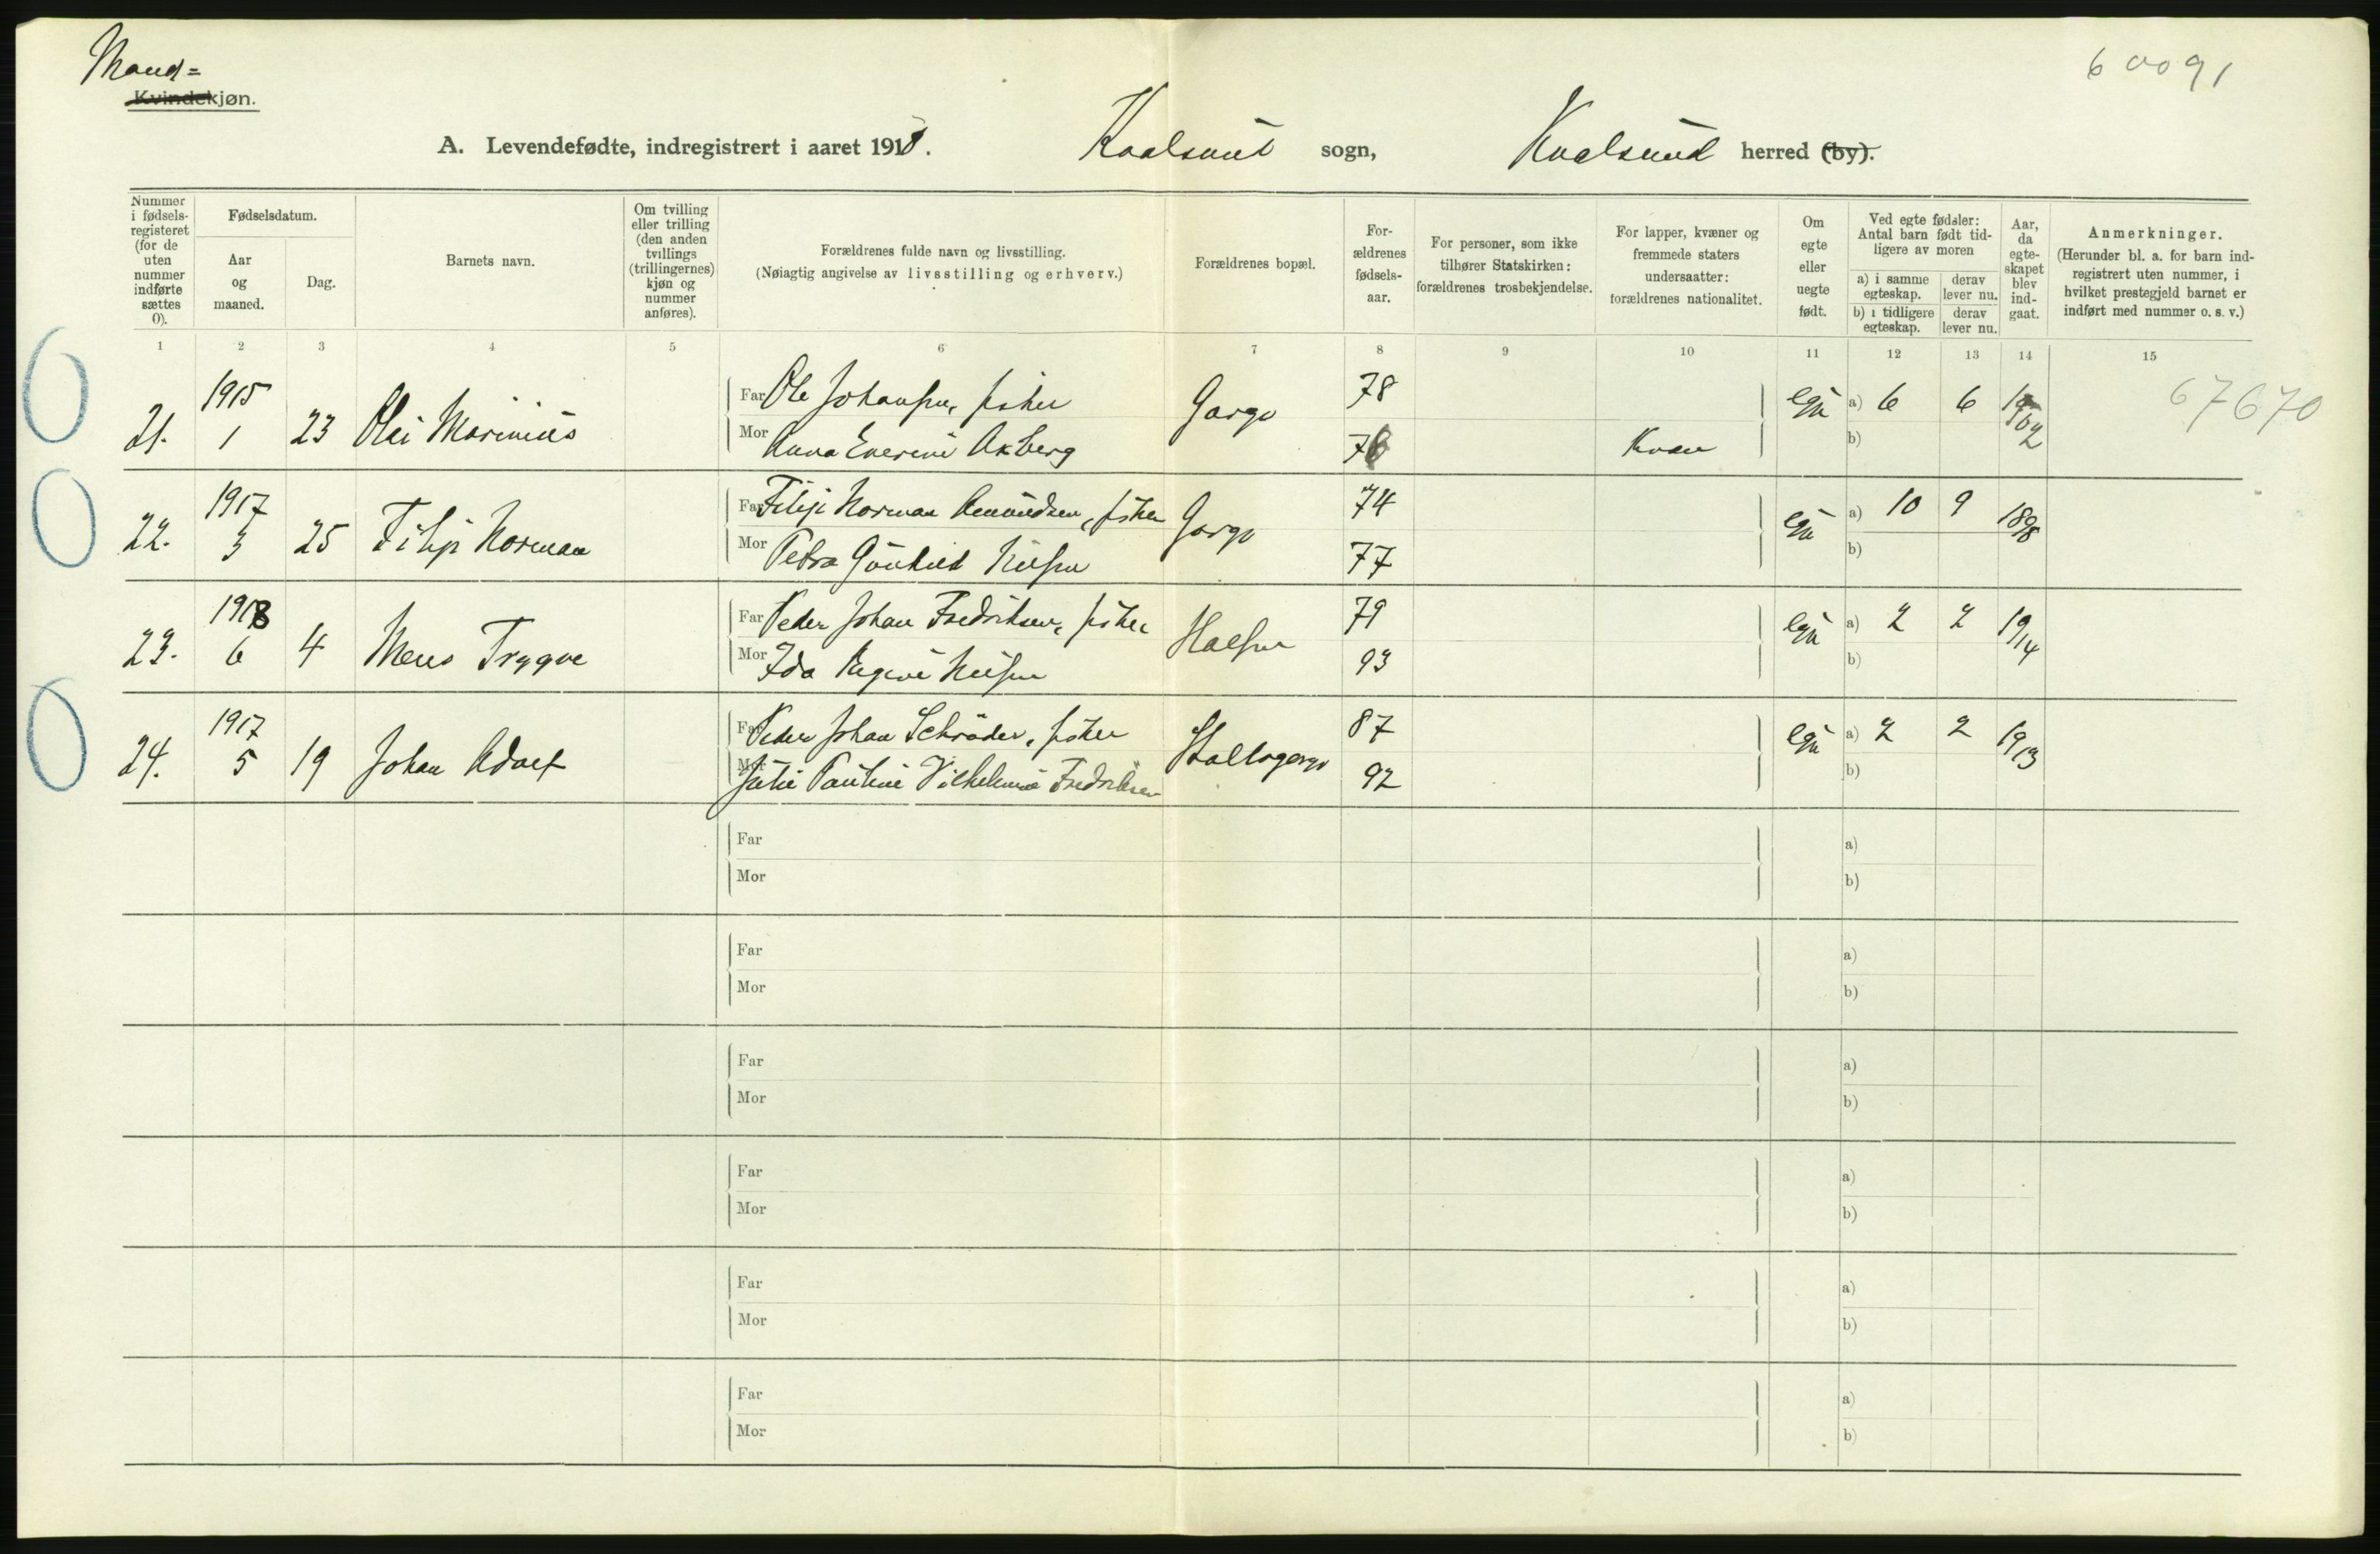 Mand=
Kvindekjøn.
60091
A. Levendefødte, indregistrert i aaret 1918. Kvalsund sogn, Kvalsund herred (by).
Nummer i fødsels-registeret (for de uten nummer indførte sættes 0).
Fødselsdatum.
Aar og maaned.
Dag.
Barnets navn.
Om tvilling eller trilling (den anden tvillings (trillingernes) kjøn og nummer anføres).
Forældrenes fulde navn og livsstilling.
(Nøiagtig angivelse av livsstilling og erhverv.)
Forældrenes bopæl.
For-ældrenes fødsels-aar.
For personer, som ikke tilhører Statskirken: forældrenes trosbekjendelse.
For lapper, kvæner og fremmede staters undersaatter: forældrenes nationalitet.
Om egte eller uegte født.
Ved egte fødsler: Antal barn født tid-ligere av moren
a) i samme egteskap.
derav lever nu.
b) i tidligere egteskap.
derav lever nu.
Aar, da egte-skapet blev ind-gaat.
Anmerkninger.
(Herunder bl. a. for barn ind-registrert uten nummer, i hvilket prestegjeld barnet er indført med nummer o. s. v.)
1 2 3 4 5 6 7 8 9 10 11 12 13 14 15
1915 Far Ole Johansen, fisker 78 a) 6 6 1902 67670
21. 1 23 Olai Marinius Gargo egte
Mor Anna Everine Akberg 76 Kvæn b)
1917 Far Filip Norman Amundsen, fisker 74 a) 10 9 1898
22. 3 25 Filip Norman Gargo egte
Mor Petra Gunhild Nilsen 77 b)
1918 Far Peder Johan Fredriksen, fisker 79 a) 2 2 1914
23. 6 4 Mens Trygve egte
Mor Ida Nilsen 93 b)
1917 Far Peder Johan Schrøder, fisker 87 a) 2 2 1913
24. 5 19 Johan Adolf Stallogargo egte
Mor Julie Pauline Vilhelmine Fredriksen 92 b)
Far a)
Mor b)
Far a)
Mor b)
Far a)
Mor b)
Far a)
Mor b)
Far a)
Mor b)
Far a)
Mor b)